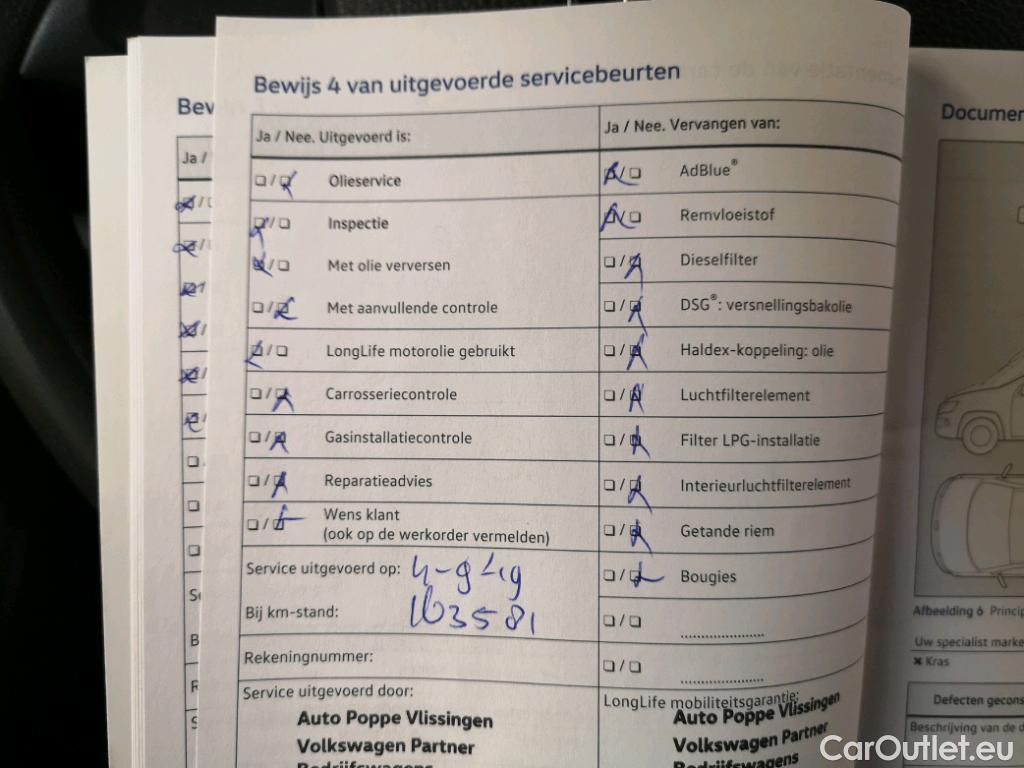 Bewijs 4 van uitgevoerde servicebeurten
Ja / Nee. Uitgevoerd is:
Olieservice
Inspectie
Met olie verversen
Met aanvullende controle
LongLife motorolie gebruikt
Carrosseriecontrole
Gasinstallatiecontrole
Reparatieadvies
Wens klant
(ook op de werkorder vermelden)
Service uitgevoerd op:
Bij km-stand: 103581
Rekeningnummer:
Service uitgevoerd door:
Auto Poppe Vlissingen
Volkswagen Partner
Bedrijfswagens
Ja / Nee. Vervangen van:
AdBlue®
Remvloeistof
Dieselfilter
DSG®: versnellingsbakolie
Haldex-koppeling: olie
Luchtfilterelement
Filter LPG-installatie
Interieurluchtfilterelement
Getande riem
Bougies
LongLife mobiliteitsgarantie:
Auto Poppe Vlissingen
Volkswagen Partner
Bedrijfswagens
Bev
Ja /
Documen
Afbeelding 6 Princip
Uw specialist marke
Kras
Defecten gecons
Beschrijving van de d
CarOutlet.eu